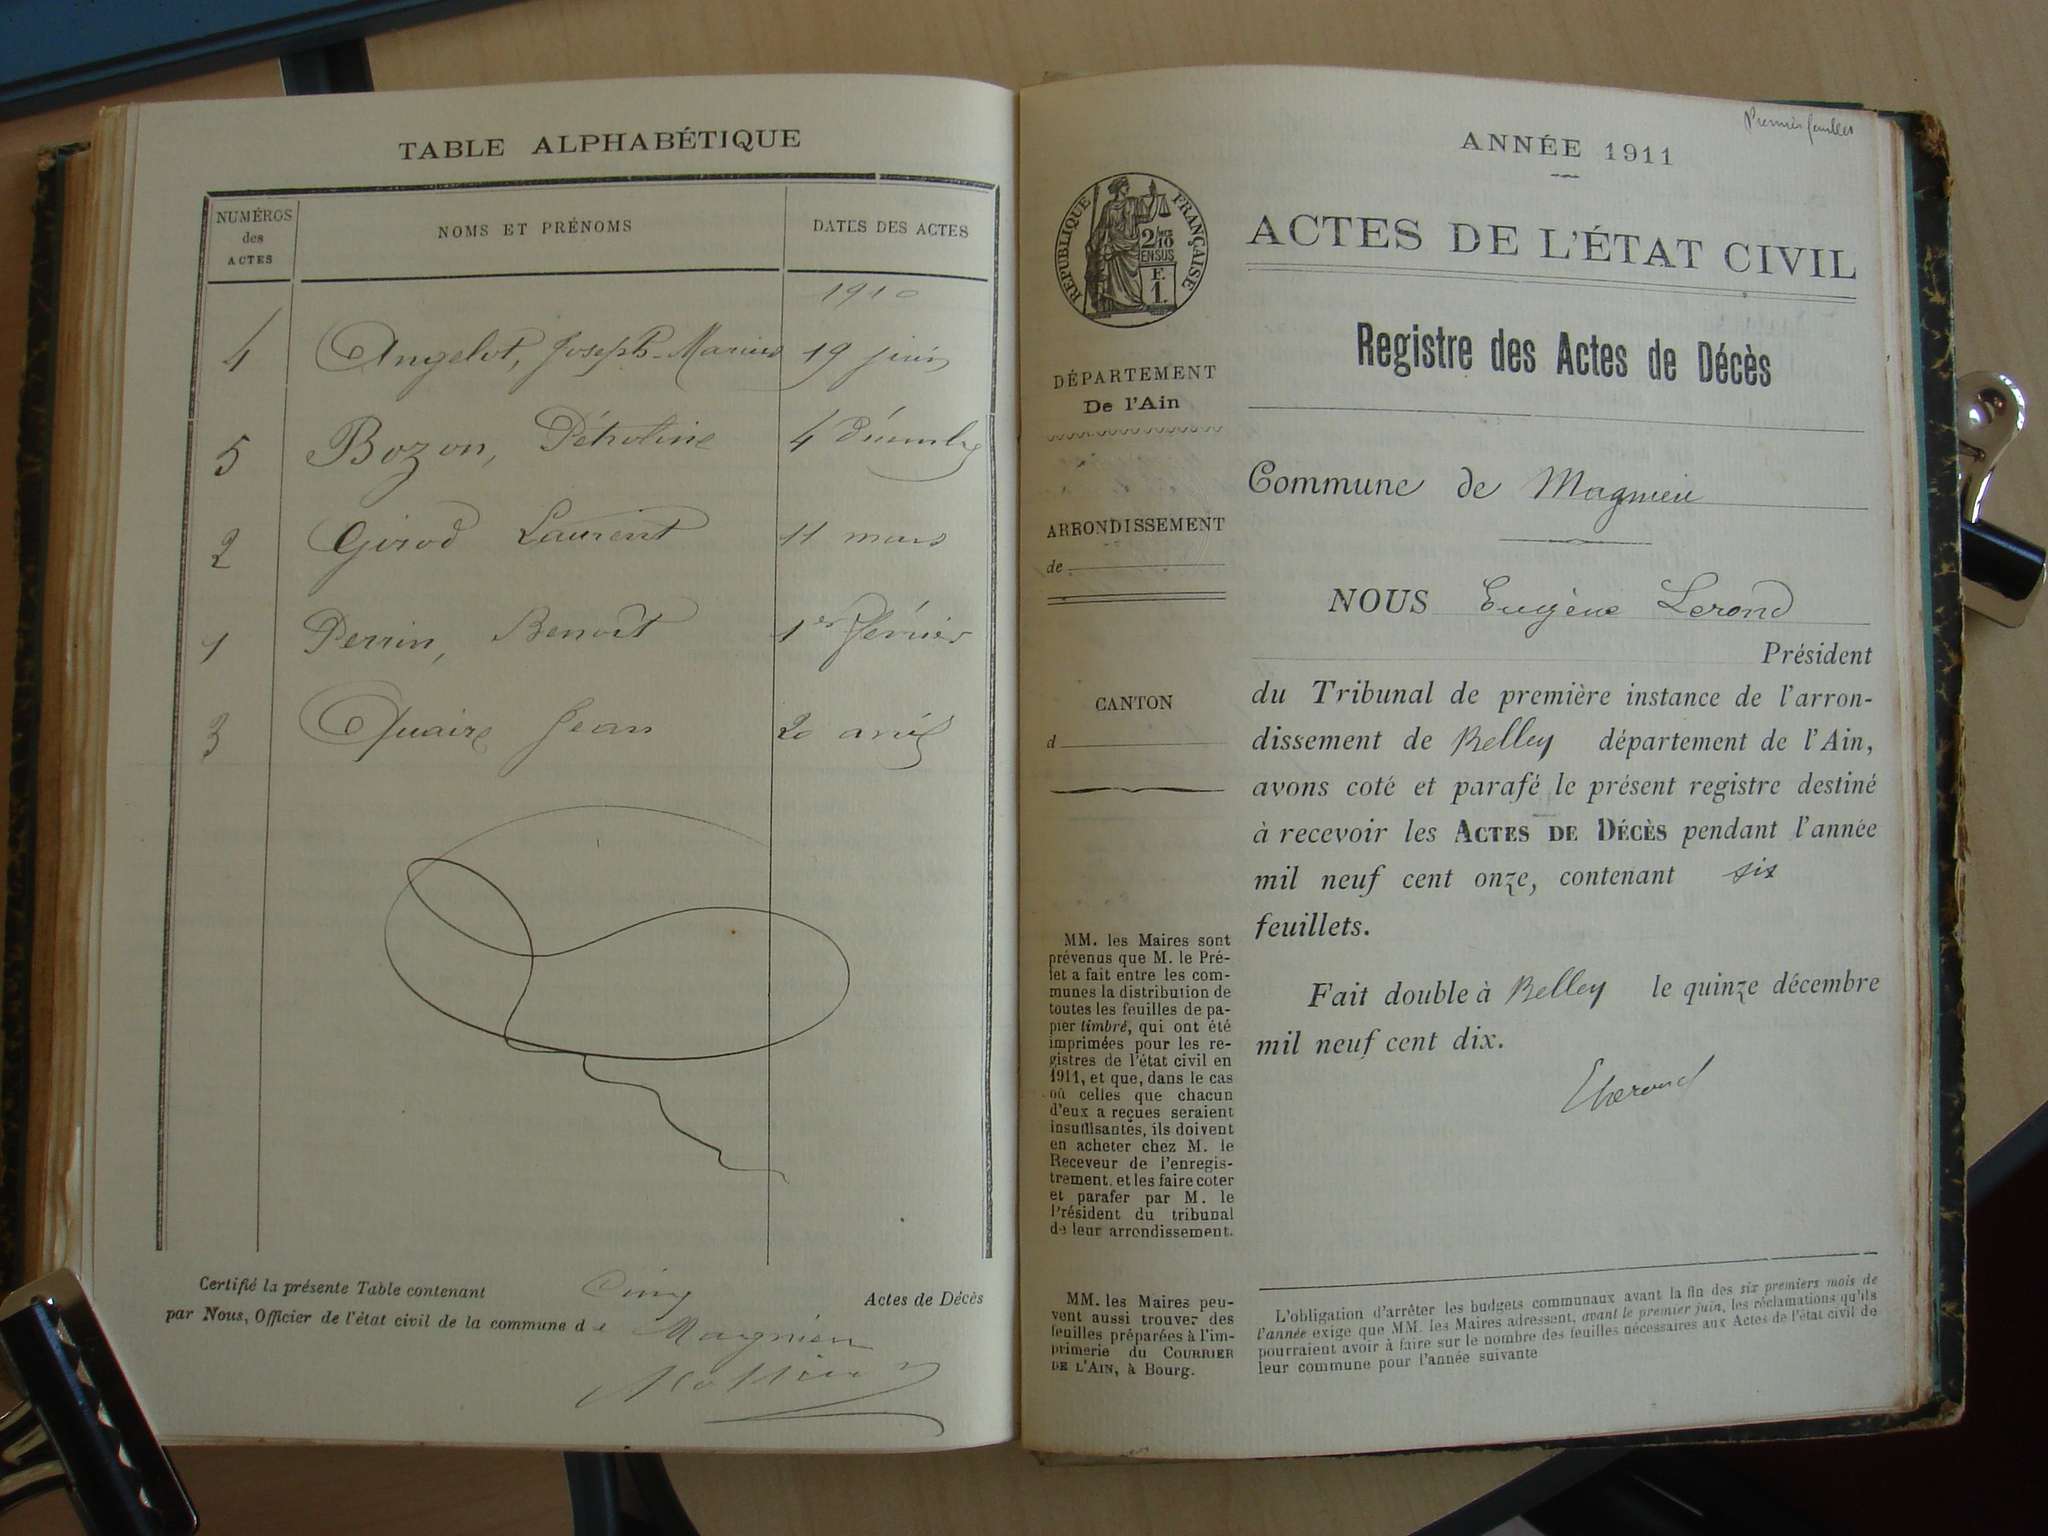 TABLE ALPHABÉTIQUE
NUMÉROS
des
ACTES
NOMS ET PRÉNOMS
DATES DES ACTES
1910
4 Angelot, Joseph-Marius 19 juin
5 Bozon, Pétroline 4 décembre
2 Girod Laurent 11 mars
1 Perrin, Benoît 1er février
3 Quaire Jean 20 avril
Certifié la présente Table contenant Cinq Actes de Décès
par Nous, Officier de l'état civil de la commune de Magnieu
Premier feuillet
ANNÉE 1911
RÉPUBLIQUE FRANÇAISE
2/10
EN SUS
F.
1.
ACTES DE L'ÉTAT CIVIL
Registre des Actes de Décès
DÉPARTEMENT
De l'Ain
Commune de Magnieu
ARRONDISSEMENT
de
NOUS Eugène Lerond
Président
du Tribunal de première instance de l'arron-
dissement de Belley département de l'Ain,
CANTON
d
avons coté et parafé le présent registre destiné
à recevoir les ACTES DE DÉCÈS pendant l'année
mil neuf cent onze, contenant six
feuillets.
Fait double à Belley le quinze décembre
mil neuf cent dix.
MM. les Maires sont
prévenus que M. le Pré-
fet a fait entre les com-
munes la distribution de
toutes les feuilles de pa-
pier timbré, qui ont été
imprimées pour les re-
gistres de l'état civil en
1911, et que, dans le cas
où celles que chacun
d'eux a reçues seraient
insuffisantes, ils doivent
en acheter chez M. le
Receveur de l'enregis-
trement, et les faire coter
et parafer par M. le
Président du tribunal
de leur arrondissement.
MM. les Maires peu-
vent aussi trouver des
feuilles préparées à l'im-
primerie du COURRIER
DE L'AIN, à Bourg.
L'obligation d'arrêter les budgets communaux avant la fin des six premiers mois de
l'année exige que MM. les Maires adressent, avant le premier juin, les réclamations qu'ils
pourraient avoir à faire sur le nombre des feuilles nécessaires aux Actes de l'état civil de
leur commune pour l'année suivante